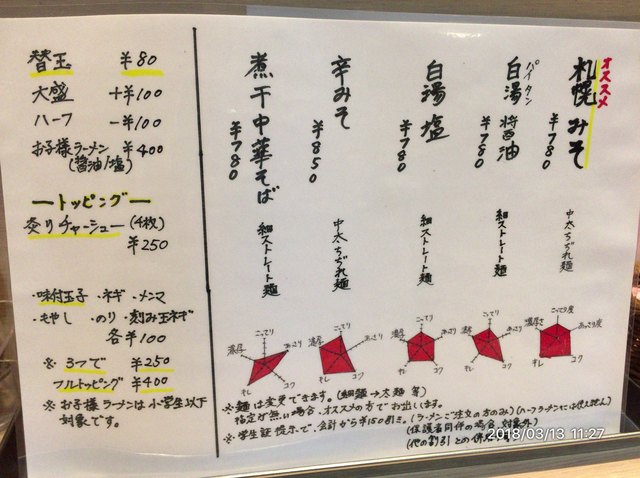 替玉 ¥80
大盛 +¥100
ハーフ -¥100
お子様ラーメン ¥400
(醤油/塩)
ートッピングー
炙りチャーシュー(4枚)
¥250
・味付玉子 ・ネギ ・メンマ
・もやし ・のり ・刻み玉ネギ
各¥100
※ 3つで ¥250
フルトッピング ¥400
※お子様ラーメンは小学生以下
対象です。
オススメ
札幌みそ
¥780
中太ちぢれ麺
パイタン
白湯醤油
¥780
細ストレート麺
白湯塩
¥780
細ストレート麺
辛みそ
¥850
中太ちぢれ麺
煮干中華そば
¥780
細ストレート麺
こってり
あっさり
コク
キレ
濃厚
こってり
あっさり
コク
キレ
濃厚
こってり
あっさり
コク
キレ
濃厚
こってり
あっさり
コク
キレ
濃厚
こってり度
あっさり度
コク
キレ
濃厚さ
※麺は変更できます。(細麺→太麺 等)
指定が無い場合、オススメの方でお出しします。
※学生証提示で、会計から¥150引き。(ラーメンご注文の方のみ)
(保護者同伴の場合 対象外)
(他の割引との併用
2018/03/13 11:27